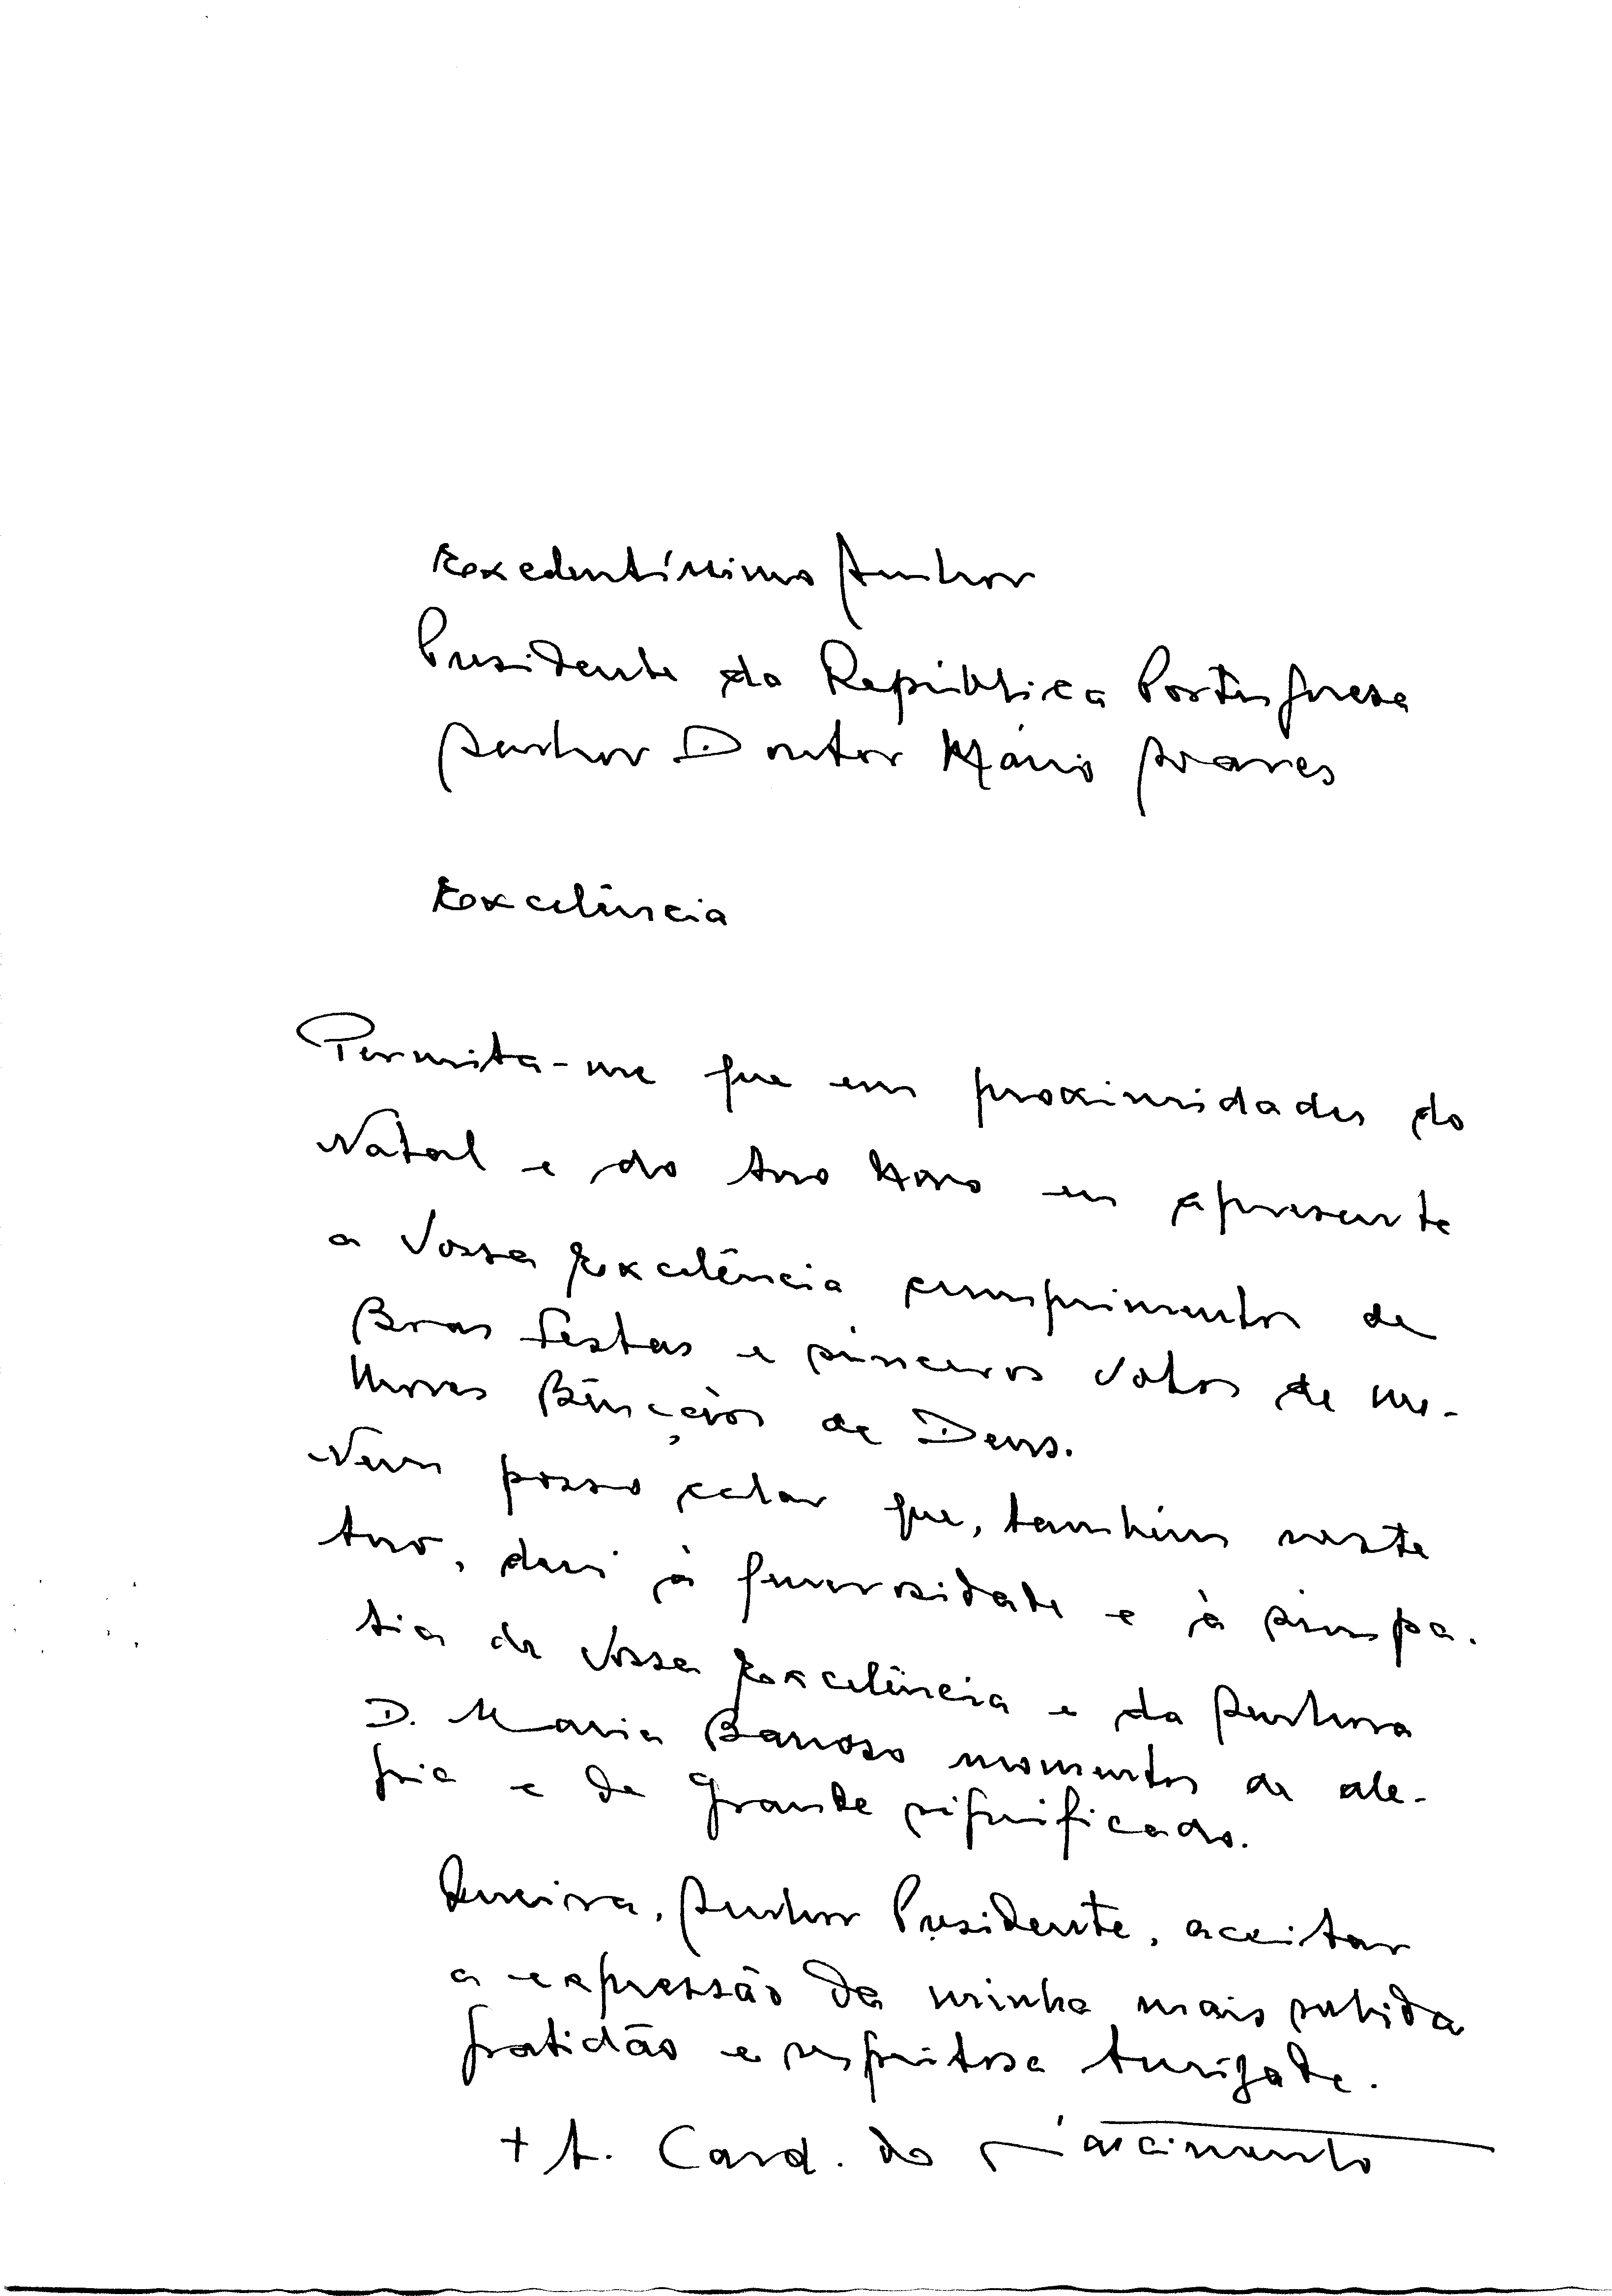 Excelentíssimo Senhor
Presidente da República Portuguesa
Senhor Doutor Mário Soares
Excelência
Permita-me que em proximidades do
Natal e do Ano Novo eu apresente
a Vossa Excelência cumprimentos de
Boas Festas e sinceros votos de me-
lhores Bênçãos de Deus.
Nem posso calar que, também neste
Ano, devi à generosidade e à simpa-
tia de Vossa Excelência e da Senhora
D. Maria Barroso momentos de ale-
gria e de grande significado.
Queira, Senhor Presidente, aceitar
a expressão da minha mais subida
gratidão e respeitosa Amizade.
+ A. Card. do Nascimento